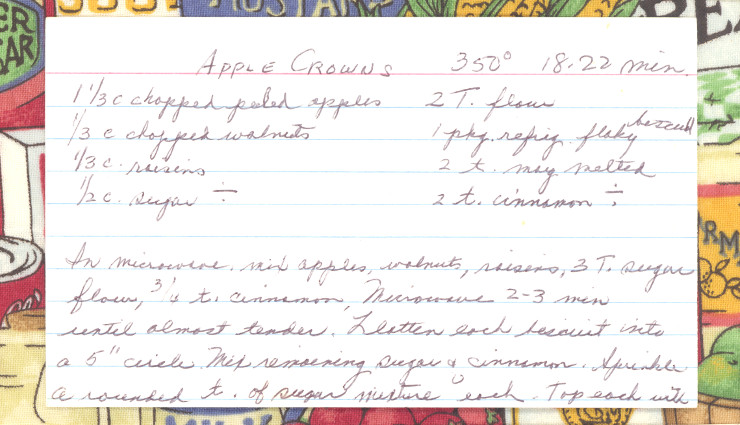 APPLE CROWNS 350° 18-22 min.
1 1/3 c chopped peeled apples 2 T. flour
1/3 c chopped walnuts 1 pkg. refrig. flaky biscuit
1/3 c. raisins 2 t. marg melted
1/2 c. sugar ÷ 2 t. cinnamon ÷
In microwave. mix apples, walnuts, raisins, 3 T. sugar
flour, 3/4 t. cinnamon, Microwave 2-3 min
until almost tender. Flatten each biscuit into
a 5" circle. Mix remaining sugar & cinnamon. Sprinkle
a rounded t. of sugar mixture each. Top each with
MUSTARD
MILK